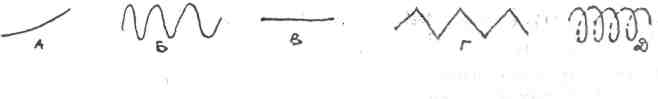 А Б В Г Д